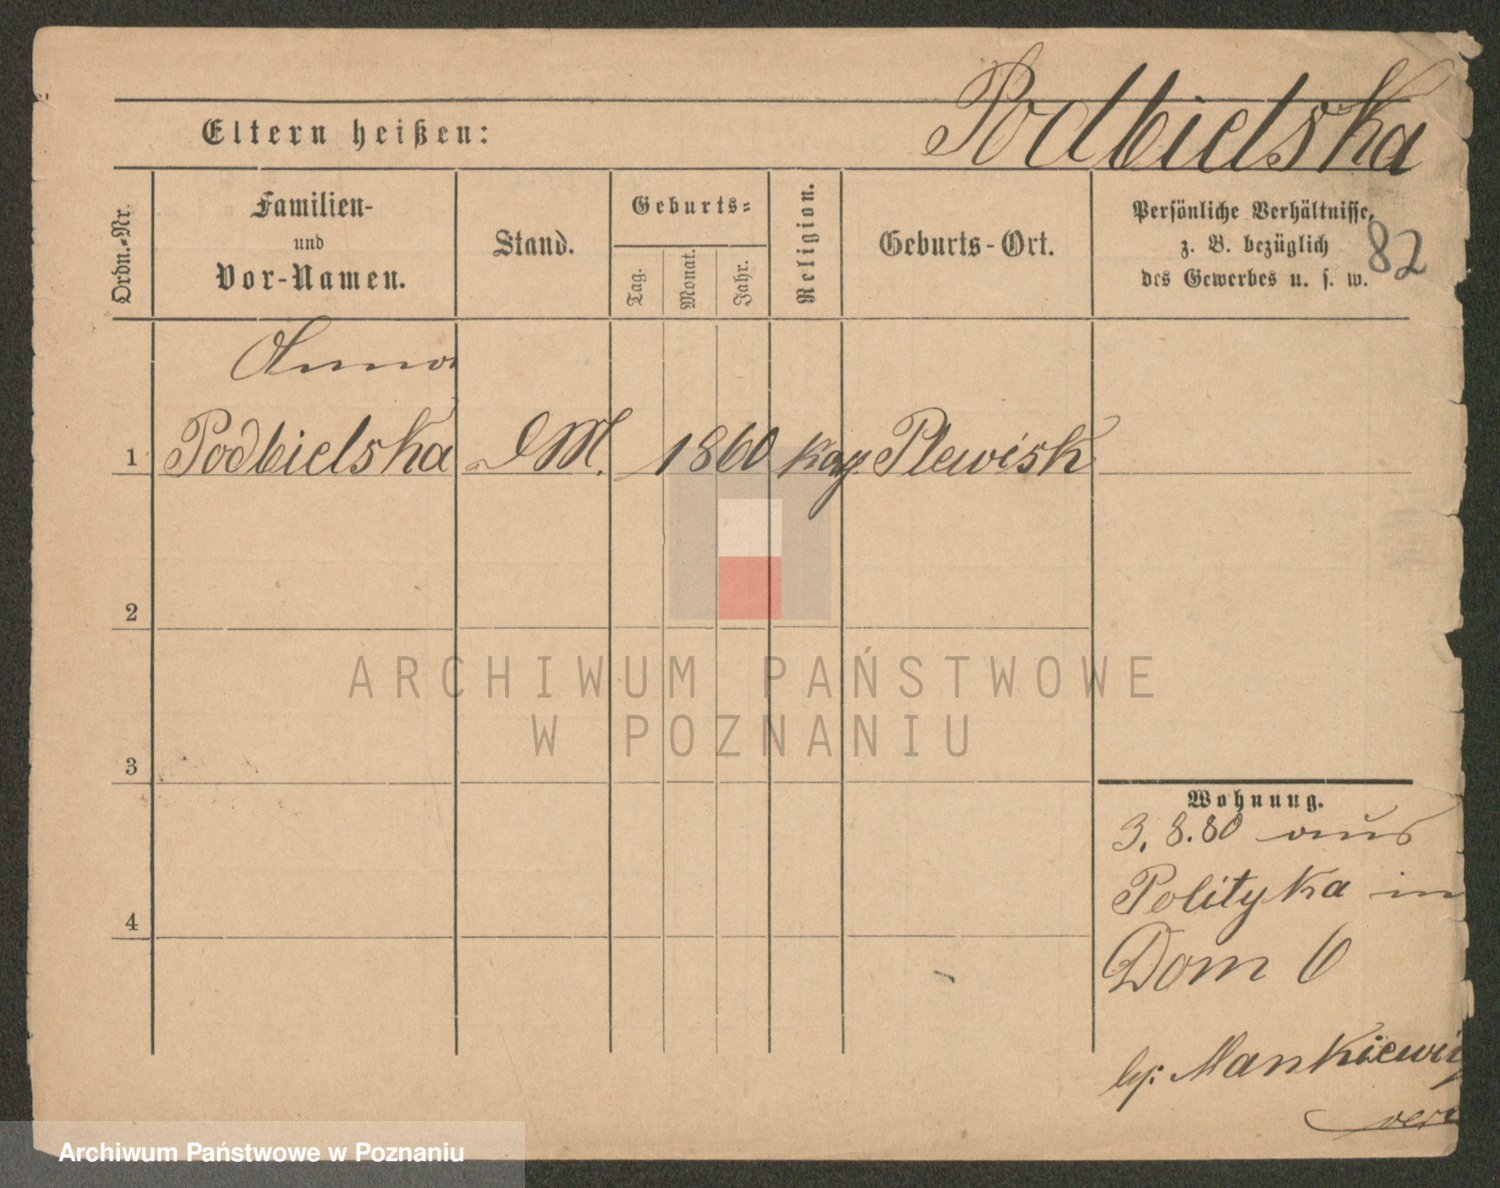 Podbielska
Eltern heißen:
Ordn.-Nr.
Familien-
und
Vor-Namen.
Stand.
Geburts-
Tag.
Monat.
Jahr.
Religion.
Geburts-Ort.
Persönliche Verhältnisse,
z. B. bezüglich
des Gewerbes u. s. w.
82
Anna
1 Podbielska DM. 1860 Plewisk
2
3
4
ARCHIWUM PAŃSTWOWE
W POZNANIU
Wohnung.
3. 8. 80 aus
Polityka in
Dom 6
by: Mankiewi
Archiwum Państwowe w Poznaniu